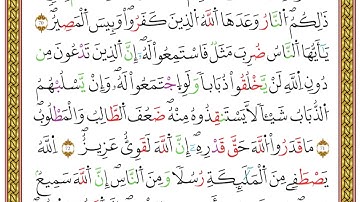 ذَٰلِكُمُ ٱلنَّارُ وَعَدَهَا ٱللَّهُ ٱلَّذِينَ كَفَرُوا۟ وَبِئْسَ ٱلْمَصِيرُ ۝٧٢
يَـٰٓأَيُّهَا ٱلنَّاسُ ضُرِبَ مَثَلٌ فَٱسْتَمِعُوا۟ لَهُۥٓ إِنَّ ٱلَّذِينَ تَدْعُونَ مِن
دُونِ ٱللَّهِ لَن يَخْلُقُوا۟ ذُبَابًا وَلَوِ ٱجْتَمَعُوا۟ لَهُۥ وَإِن يَسْلُبْهُمُ
ٱلذُّبَابُ شَيْـًٔا لَّا يَسْتَنقِذُوهُ مِنْهُ ضَعُفَ ٱلطَّالِبُ وَٱلْمَطْلُوبُ
۝٧٣ مَا قَدَرُوا۟ ٱللَّهَ حَقَّ قَدْرِهِۦٓ إِنَّ ٱللَّهَ لَقَوِىٌّ عَزِيزٌ ۝٧٤ ٱللَّهُ
يَصْطَفِى مِنَ ٱلْمَلَـٰٓئِكَةِ رُسُلًا وَمِنَ ٱلنَّاسِ إِنَّ ٱللَّهَ سَمِيعٌۢ